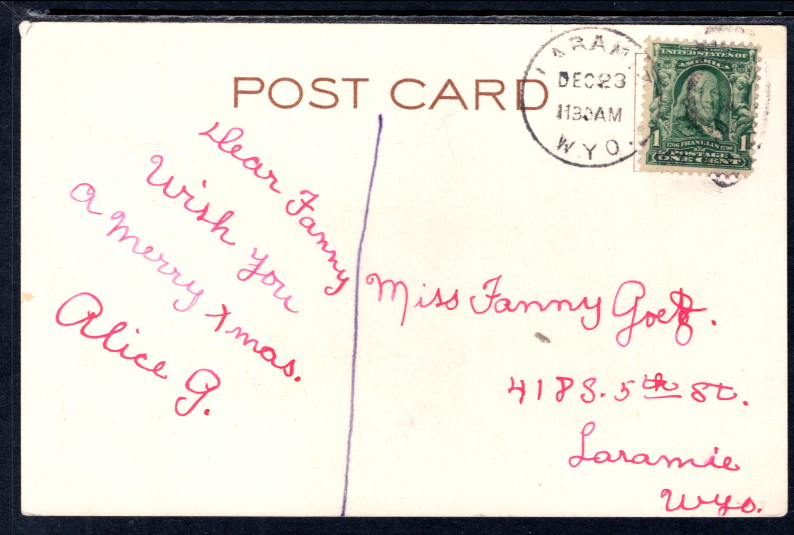 POST CARD
LARAMIE
DEC 23
1130AM
WYO.
SERIES 1902
UNITED STATES OF
AMERICA
1 1706 FRANKLIN 1790 1
POSTAGE
ONE CENT
Dear Fanny
Wish you
a Merry Xmas.
Alice G.
Miss Fanny Goetz.
418 S. 5th St.
Laramie
Wyo.